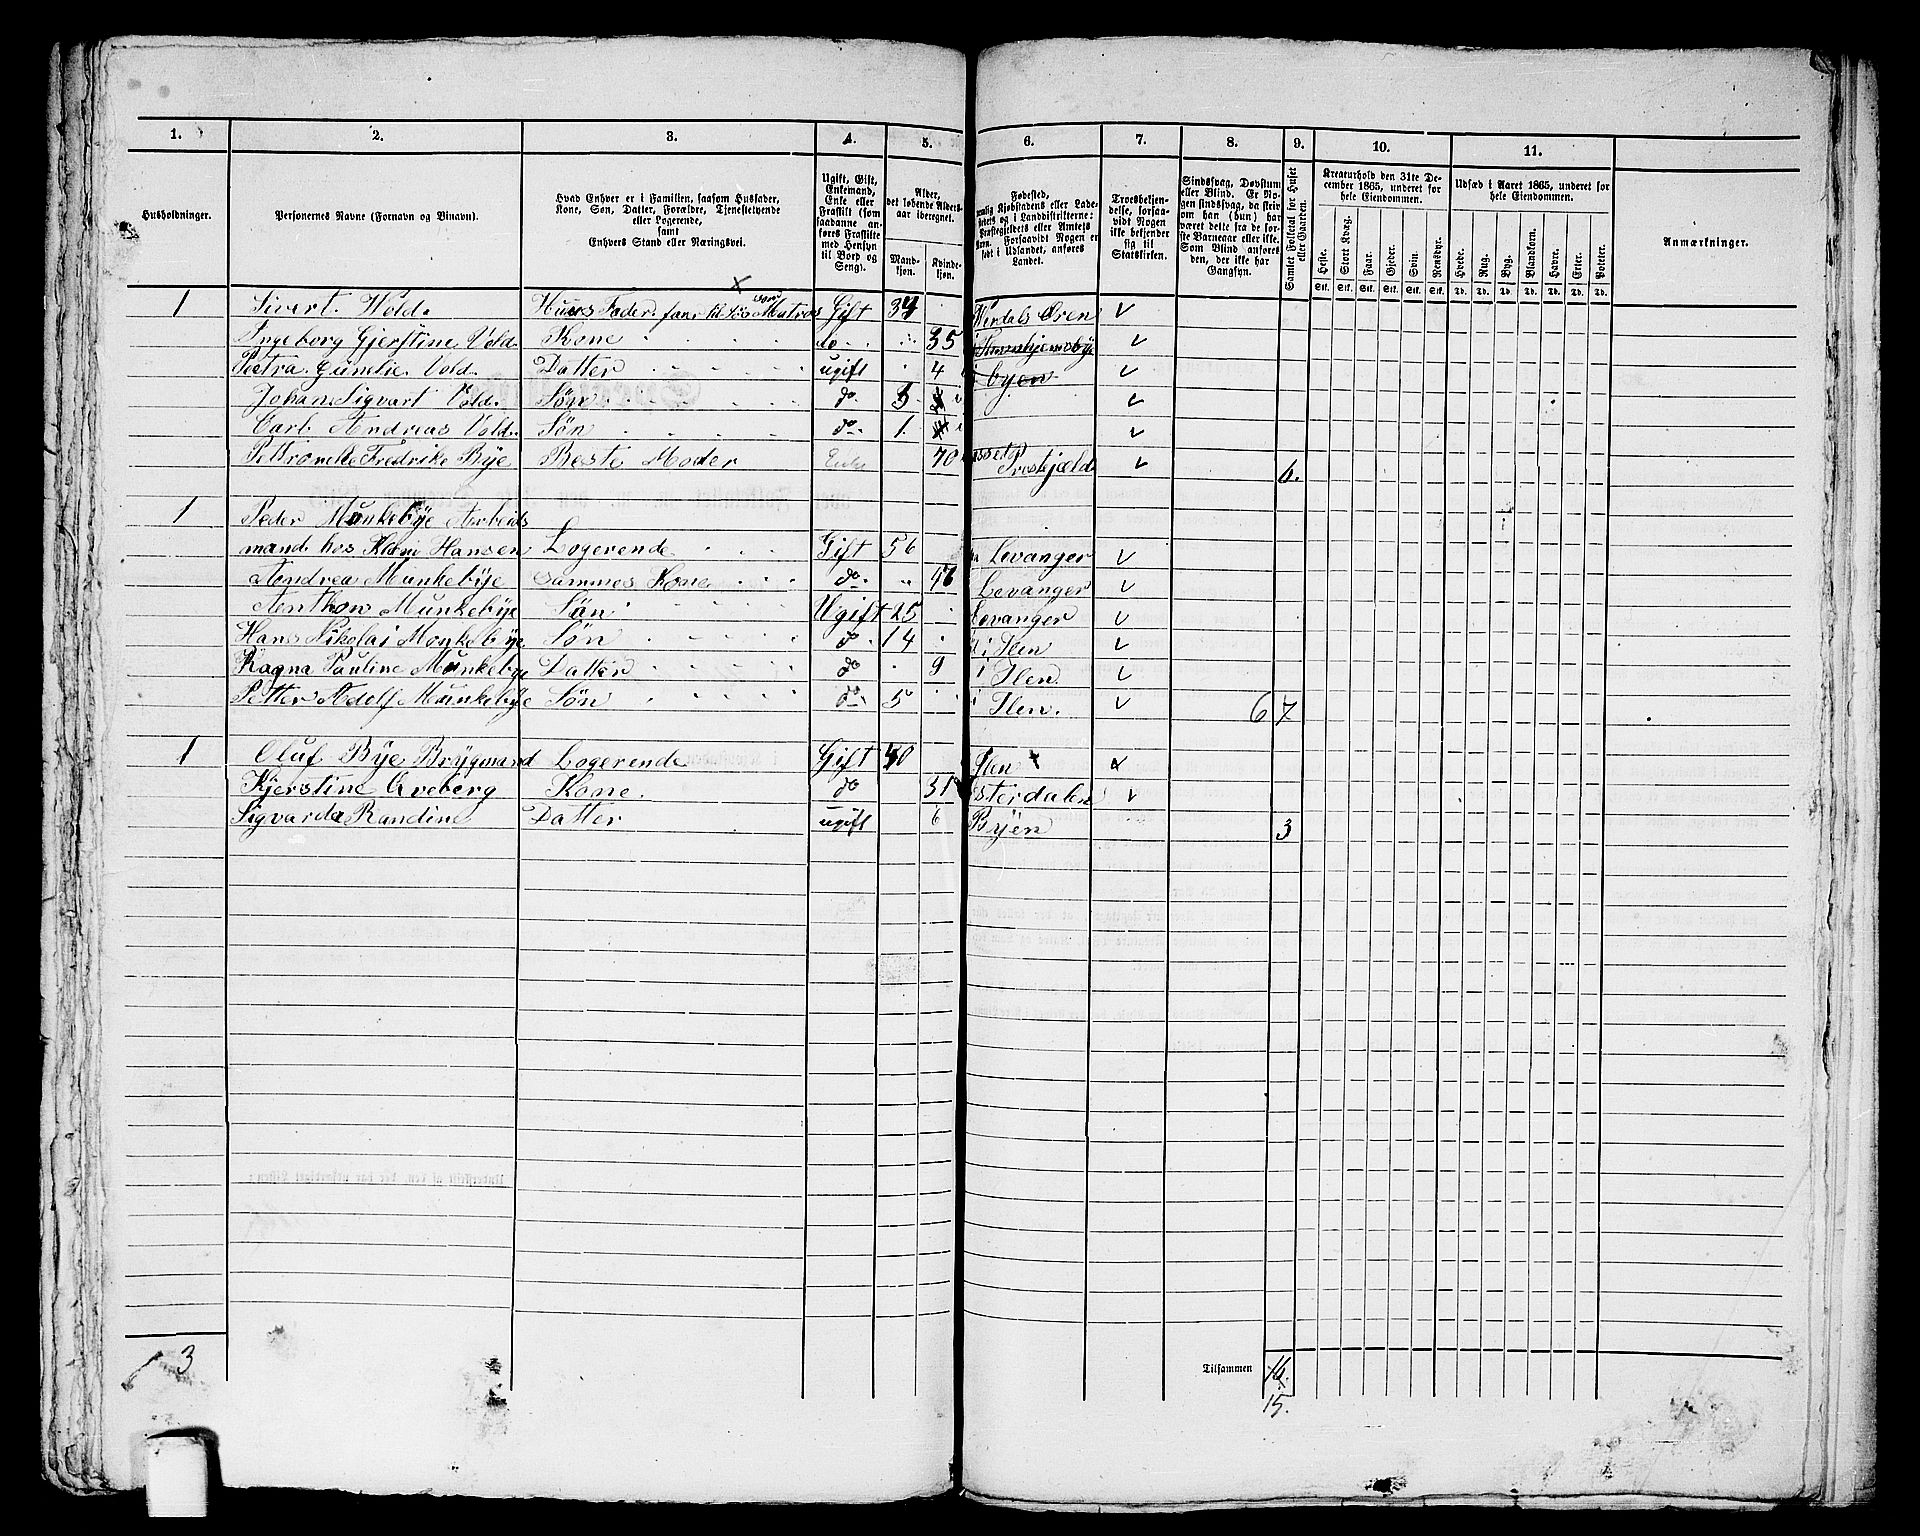 1. 2. 3. 4. 5. 6. 7. 8. 9. 10. 11.
Husholdninger.
Personernes Navne (Fornavn og Tilnavn).
Hvad Enhver er i Familien, saasom Husfader,
Kone, Søn, Datter, Forældre, Tjenestetyende
eller Logerende,
samt
Enhvers Stand eller Næringsvei.
Ugift, Gift,
Enkemand,
Enke eller
Fraskilt (som
saadanne an-
føres Fraskilte
med Hensyn
til Bord og
Seng).
Alder,
det løbende Alders-
aar iberegnet.
Mand-
kjøn.
Kvinde-
kjøn.
Fødested,
Landet.
Troesbekjen-
delse, forsaa-
vidt Nogen
ikke bekjender
sig til
Statskirken.
Sindssvag, Døvstum
eller Blind. Er No-
gen sindssvag, da skrid
om han (hun) har
været dette fra de før-
ste Barneaar eller ikke.
Som Blind anføres
den, der ikke har
Gangsyn.
Samlet Folketal for Huset
eller Gaarden.
Kreaturhold den 31te De-
cember 1865, underet for
hele Eiendommen.
Heste. Stort Kvæg. Faar. Gjeder. Svin. Rensdyr.
Stk. Stk. Stk. Stk. Stk. Stk.
Udsæd i Aaret 1865, underet for
hele Eiendommen.
Hvede. Rug. Byg. Blandkorn. Havre. Erter. Poteter.
Td. Td. Td. Td. Td. Td. Td.
Anmærkninger.
1 Sivert Wold. Huus Fader. farer til Søs som Matros Gift 34 Werdals Øren
Ingeborg Gjerstine Vold. Kone do 35 i Trondhjems bye
Petra Gunelie Vold. Datter ugift 4 i byen
Johan Sigvart Vold. Søn do 3
Carl Andreas Vold. Søn do 1
Pettronelle Fredrike Bye Beste Moder Enke 70 Preskjæld 6.
1 Peder Munkebye Arbeids
mand hos Hansen Logerende Gift 56 Levanger
Andrea Munkebye Sammes Kone do 46 Levanger
Anthon Munkebye Søn Ugift 25 Levanger
Hans Nikolai Munkebye Søn do 14 i Ilen
Ragna Pauline Munkebye Datter do 9 i Ilen
Petter Adolf Munkebye Søn do 5 i Ilen. 6 7
1 Oluf Bye Brygmand Logerende Gift 40 Ilen
Kjerstine Aveberg Kone. do 31 Østerdalen
Sigvarda Randine Datter ugift 6 Byen 3
3 Tilsammen 16.
15.